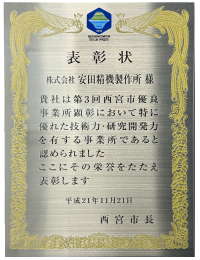 NISHINOMIYA
TECH PRIDE
表彰状
株式会社 安田精機製作所 様
貴社は第3回西宮市優良
事業所顕彰において特に
優れた技術力・研究開発力
を有する事業所であると
認められました
ここにその栄誉をたたえ
表彰します
平成21年11月21日
西宮市長